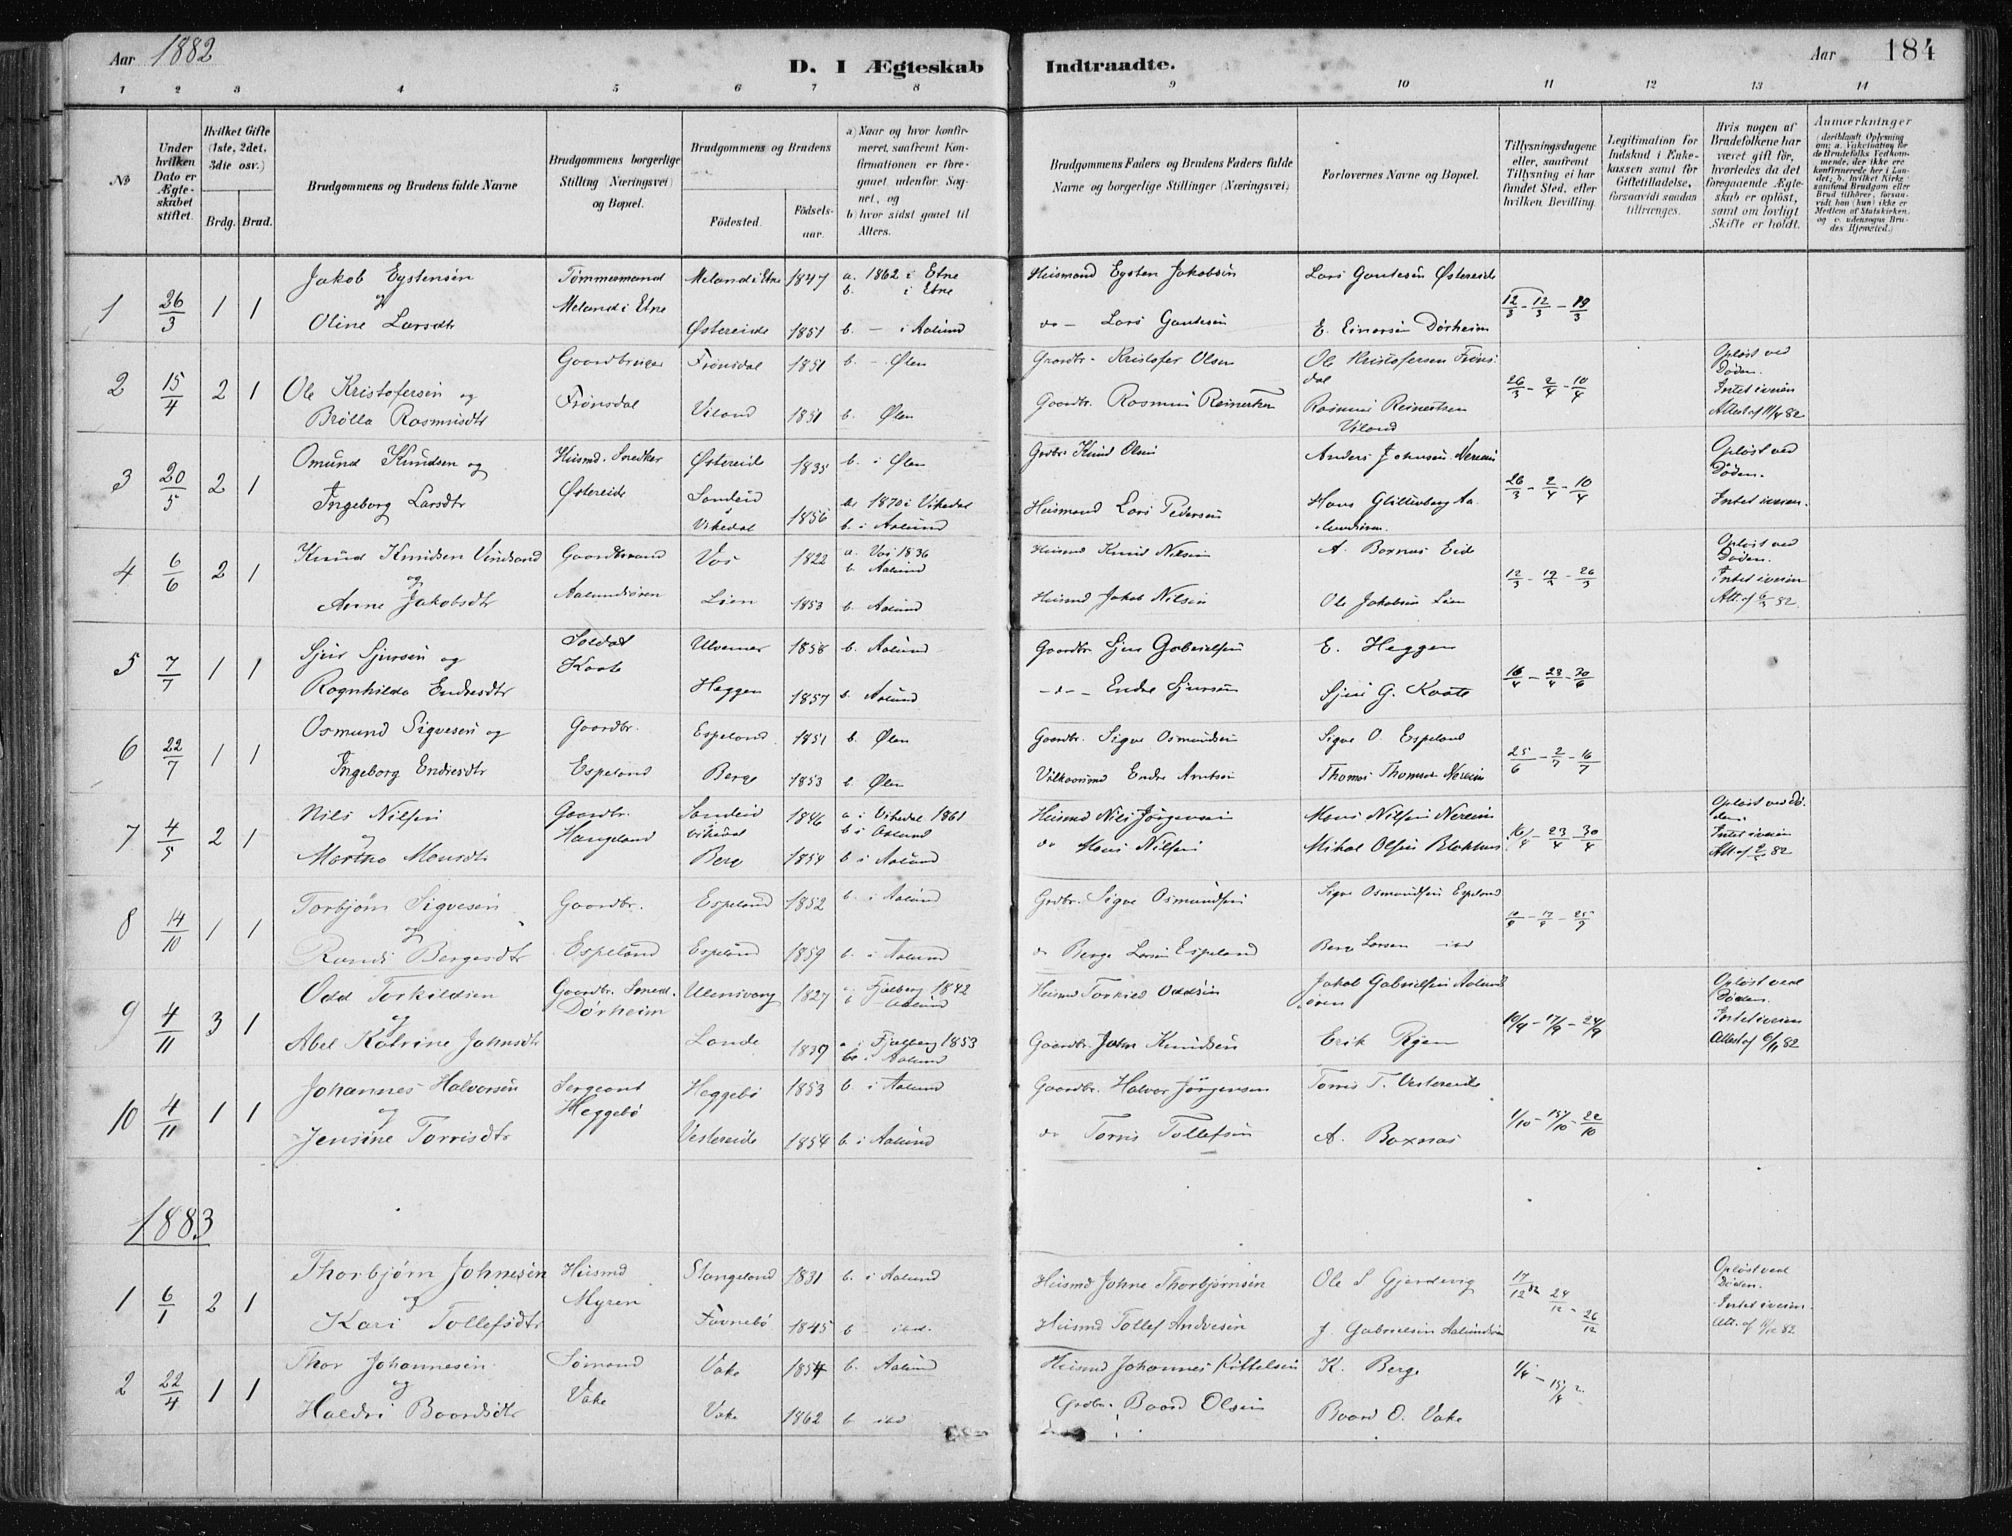 Aar 1882
D. I Ægteskab Indtraadte.
Aar 184
1 2 3 4 5 6 7 8 9 10 11 12 13 14
No
Under hvilken Dato er Ægteskabet stiftet.
Hvilket Gifte (1ste, 2det, 3die osv.)
Brdg. Brud.
Brudgommens og Brudens fulde Navne
Brudgommens borgerlige Stilling (Næringsvei) og Bopæl.
Brudgommens og Brudens
Födested. Födselsaar.
a) Naar og hvor konfirmeret, saafremt Konfirmationen er foregaaet udenfor Sognet, og
b) hvor sidst gaaet til Alters.
Brudgommens Faders og Brudens Faders fulde Navne og borgerlige Stillinger (Næringsvei)
Forlovernes Navne og Bopæl.
Tillysningsdagene eller, saafremt Tillysning ei har fundet Sted, efter hvilken Bevilling.
Legitimation for Indskud i Enkekassen samt for Giftetilladelse, forsaavidt saadan tiltrænges.
Hvis nogen af Brudefolkene har været gift för, hvorledes da det foregaaende Ægteskab er oplöst, samt om lovligt Skifte er holdt.
Anmærkninger
1 26/3 1 1 Jakob Eystensen og Oline Larsdtr
Tømmermand Meland i Etne
Meland i Etne 1847 a. 1862 i Etne b. i Etne
Østereide 1851 b. - i Aalund
Huusmand Eysten Jakobsen
do - Lars Gautesen
Lars Gautesen Østereide
E. Einarsen Dørheim
12/3 - 12/3 - 19/3
2 15/4 2 1 Ole Kristofersen og Brølla Rasmusdtr
Gaardbruger Frønsdal
Frønsdal 1851 b. - Ølen
Viland 1851 b. Ølen
Gaardbr. Kristofer Olsen
Gaardbr. Rasmus Reinertsen
Ole Kristofersen Frønsdal
Rasmus Reinertsen Viland
26/3 - 2/4 - 10/4
Opløst ved Døden.
Intet iveien
Attest af 11/4 82
3 20/5 2 1 Omund Knudsen og Ingeborg Larsdtr
Husmd. Snedker Østereide
Østereide 1835 b. i Ølen
Sandeid i Vikedal 1856 a. 1870 i Vikedal b. i Aalund
Grdbr. Knud Olsen
Huusmand Lars Pedersen
Anders Johnsen Nereim
Hans Glittenberg Aalundøren
26/3 - 2/4 - 10/4
Opløst ved Døden.
Intet iveien.
4 6/6 2 1 Knud Knudsen Vindsand og Anne Jakobsdtr
Gaardbrmand Aalundøren
Vos 1822 a. Vos 1836 b. Aalund
Lien 1853 b. Aalund
Huusmd Knud Nilsen
Huusmd Jakob Nilsen
A. Boxnas Eide
Ole Jakobsen Lien
12/3 - 19/3 - 26/3
Opløst ved Døden
Intet iveien
Att. af 6/3 82.
5 7/7 1 1 Sjur Sjursen og Ragnhilda Endresdtr
Soldat Kaate
Ulvenes 1858 b. Aalund
Heggen 1857 b. Aalund
Gaardbr. Sjur Gabrielsen
- do - Endre Sjursen
E. Heggen
Sjur G. Kaate
16/4 - 23/4 - 30/6
6 22/7 1 1 Osmund Sigvesen og Ingeborg Endresdtr
Gaardbr. Espeland
Espeland 1851 b. Ølen
Berge 1853 b. Ølen
Gaardbr. Sigve Osmundsen
Vilkaarsmd Endre Arntsen
Sigve O. Espeland
Thomas Thomsen Nereim
25/6 - 2/7 - 16/7
7 4/5 2 1 Nils Nilsen og Martha Monsdtr
Gaardbr. Haugeland
Sandeid Vikedal 1846 a i Vikedal 1861 b i Aalund
Berg 1854 b i Aalund
Huusmd Nils Jörgensen
do Mons Nilsen
Mons Nilsen Nereim
Mikal Olsen Blokhus
16/4 - 23/4 - 30/4
Opløst ved Døden.
Intet iveien
Att af 2/5 82
8 14/10 1 1 Torbjörn Sigvesen og Randi Bergesdtr
Gaardbr. Espeland
Espeland 1852 b. i Aalund
Espeland 1859 b. i Aalund
Grdbr. Sigve Osmundsen
do Berge Larsen Espeland
Sigve Osmundsen Espeland
Berge Larsen ibd
10/9 - 17/9 - 25/9
9 4/11 3 1 Odd Torkildsen og Abel Katrine Johnsdtr
Gaardbr. Smed. Dørheim
Ulensvang 1827 a. i Fjelberg 1842 b - Aalund
Lande 1839 a. i Fjelberg 1853 b. i Aalund
Huusmd Torkild Oddsen
Gaardbr. John Knudsen
Jakob Gabrielsen Aalundøren
Erik Rygen
10/9 - 17/9 - 24/9
Opløst ved Døden.
Intet iveien
Attest af 6/11 82
10 4/11 1 1 Johannes Halvorsen og Jensine Torrisdtr
Sergeant Heggebö
Heggebö 1853 b. i Aalund
Vestereide 1854 b. i Aalund
Gaardbr. Halvor Jörgensen
do Torris Tollefsen
Torris T. Vestereide
A. Boxnas
1/10 - 15/10 - 22/10
1883
1 6/1 2 1 Thorbjørn Johnesen og Kari Tollefsdtr
Huusmd Myren
Stangeland 1831 b. i Aalund
Favnebö 1845 b - ibd.
Huusmd Johne Thorbjørnsen
Huusmd Tollef Andvesen
Ole S Gjerdevig
J. Gabrielsen Aalundøren
17/12 82 24/12 - 26/12
Opløst ved Døden.
Intet iveien.
Att. af 11/12 82
2 22/4 1 1 Thor Johannesen og Haldri Baardsdtr
Sømand Vake
Vake 1854 b. Aalund
Vake 1862 b ibd
Huusmd Johannes Kittelsen
Grdbr. Baard Olsen
K. Berge
Baard O. Vake
1/4 - 15/4